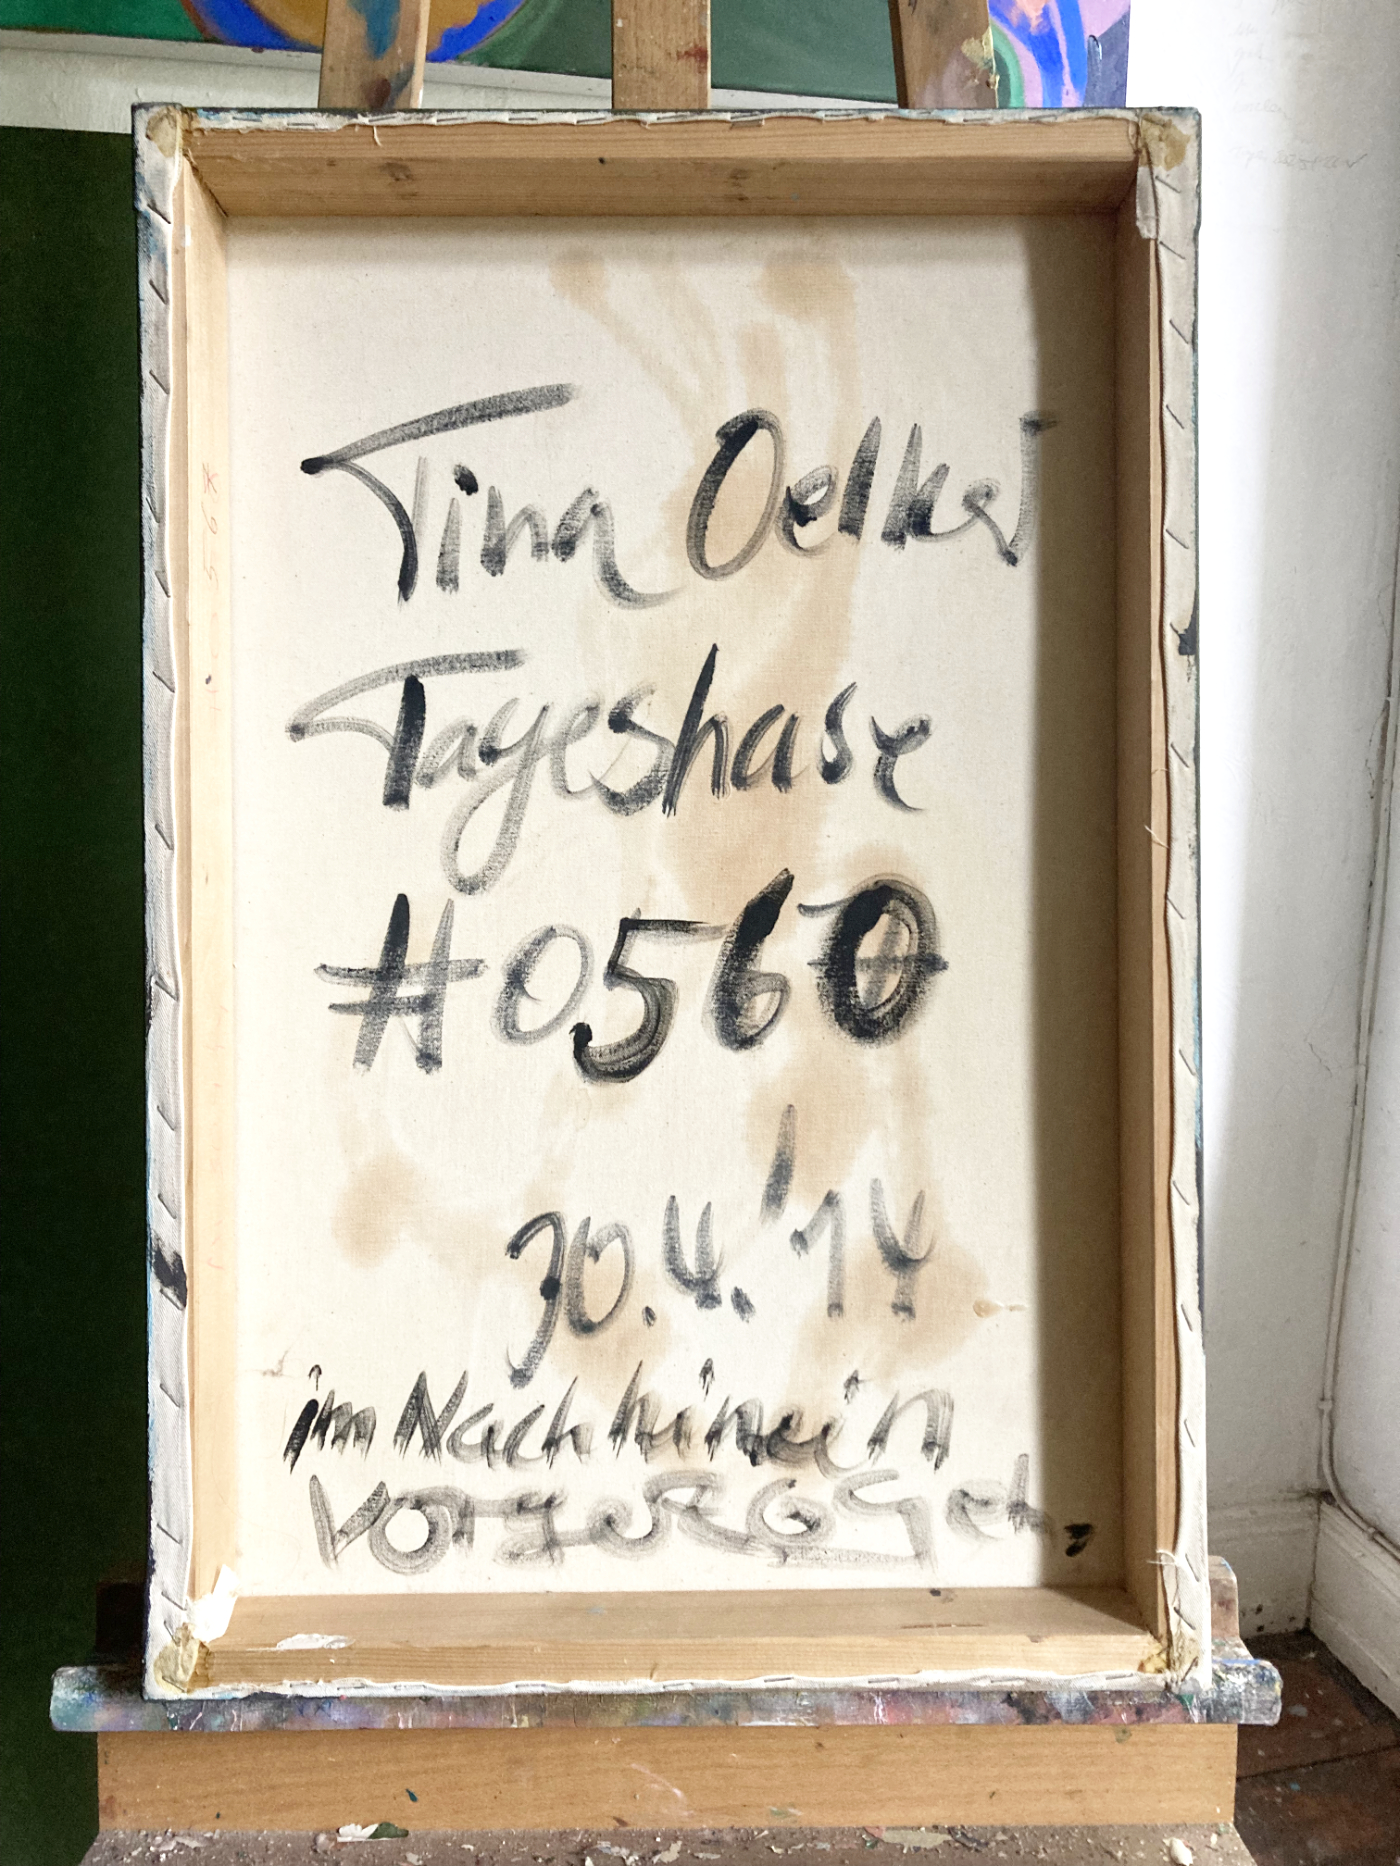 Tina Oelker
Tageshase
#0560
30.4.'14
im Nachhinein
vorgezogen.